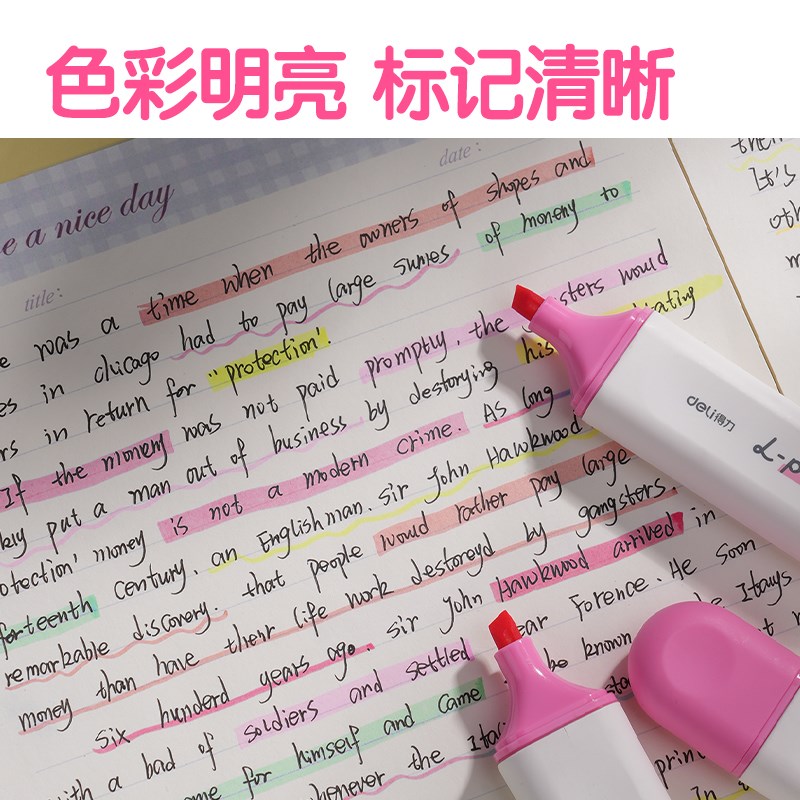 色彩明亮 标记清晰
date:
e a nice day
title:
time when the owners of shopes and
e was a had to pay large sumes of moneny to
es in chicago "protection'. promptly, the sters would
rs in return for was not paid his
If the money by destorying
put a man out of business As long
otection' money is not a modern crime.
century, an Englishman. Sir John Hawkwood
forteenth that people would rather pay large
remarkable discovery. life work destoreyd by gangsters.
money than have their Sir John Hawkwood arrived in
six hunderd years ago. ear Forence. He soon
ith a bad of soldiers and settled be known
ome for himself and came the Itays
whenever the
then
It's
oth
deli得力